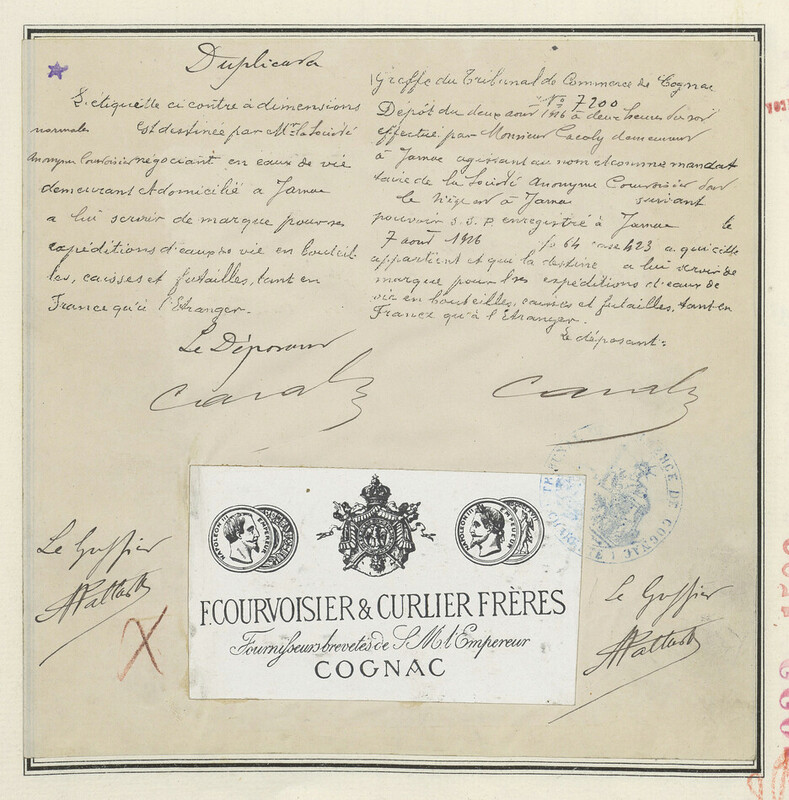 Duplicata
L'étiquette ci contre à dimensions
normales est destinée par Mr. la Société
Anonyme Courvoisier négociant en eaux de vie
demeurant et domicilié à Jarnac
a lui servir de marque pour ses
expéditions d'eaux de vie en bouteil
les, caisses et futailles, tant en
France qu'à l'Etranger.
Le Déposant
Greffe du Tribunal de Commerce de Cognac
No 7200
Dépôt du deux août 1926 à deux heures du soir
effectué par Monsieur demeurant
à Jarnac agissant au nom et comme mandat
taire de la Société Anonyme Courvoisier dont
le siège est à Jarnac suivant
pouvoir S.S.P. enregistré à Jarnac le
7 août 1926 fo 64 case 423 a qui elle
appartient et qui la destine a lui servir de
marque pour ses expéditions d'eaux de
vie en bouteilles, caisses et futailles, tant en
France qu'à l'Etranger.
Le déposant:
NAPOLEON III EMPEREUR
NAPOLEON III EMPEREUR
F. COURVOISIER & CURLIER FRÈRES
Fournisseurs brevetés de S. M. l'Empereur
COGNAC
Le Greffier
Le Greffier
DE COGNAC